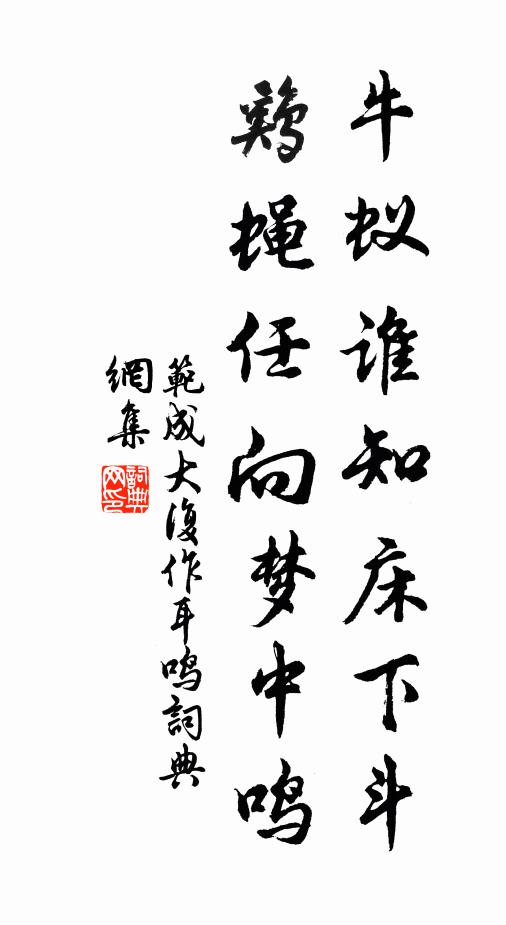 牛蚁谁知床下斗
鷄蝇任向梦中鸣
範成大復作耳鸣詞典
網集
詞典网印